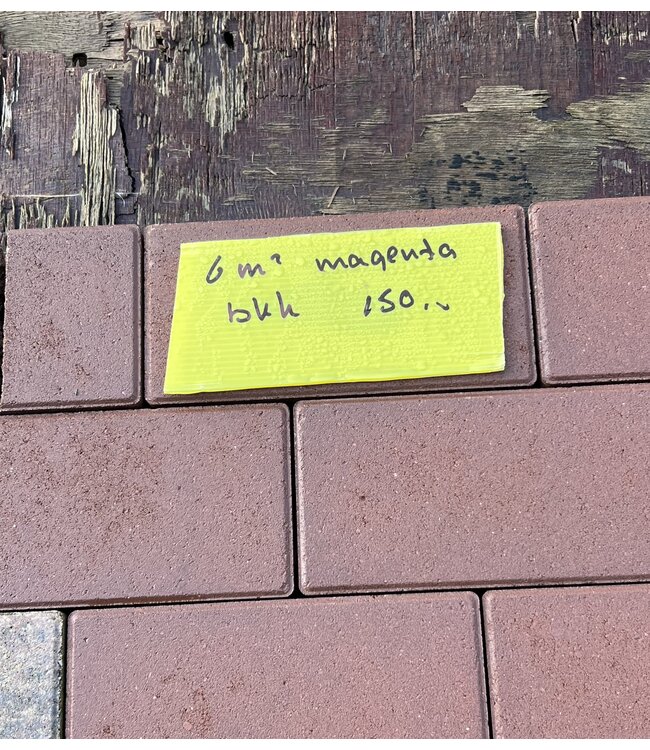 6 m² magenta
bkk 150.-